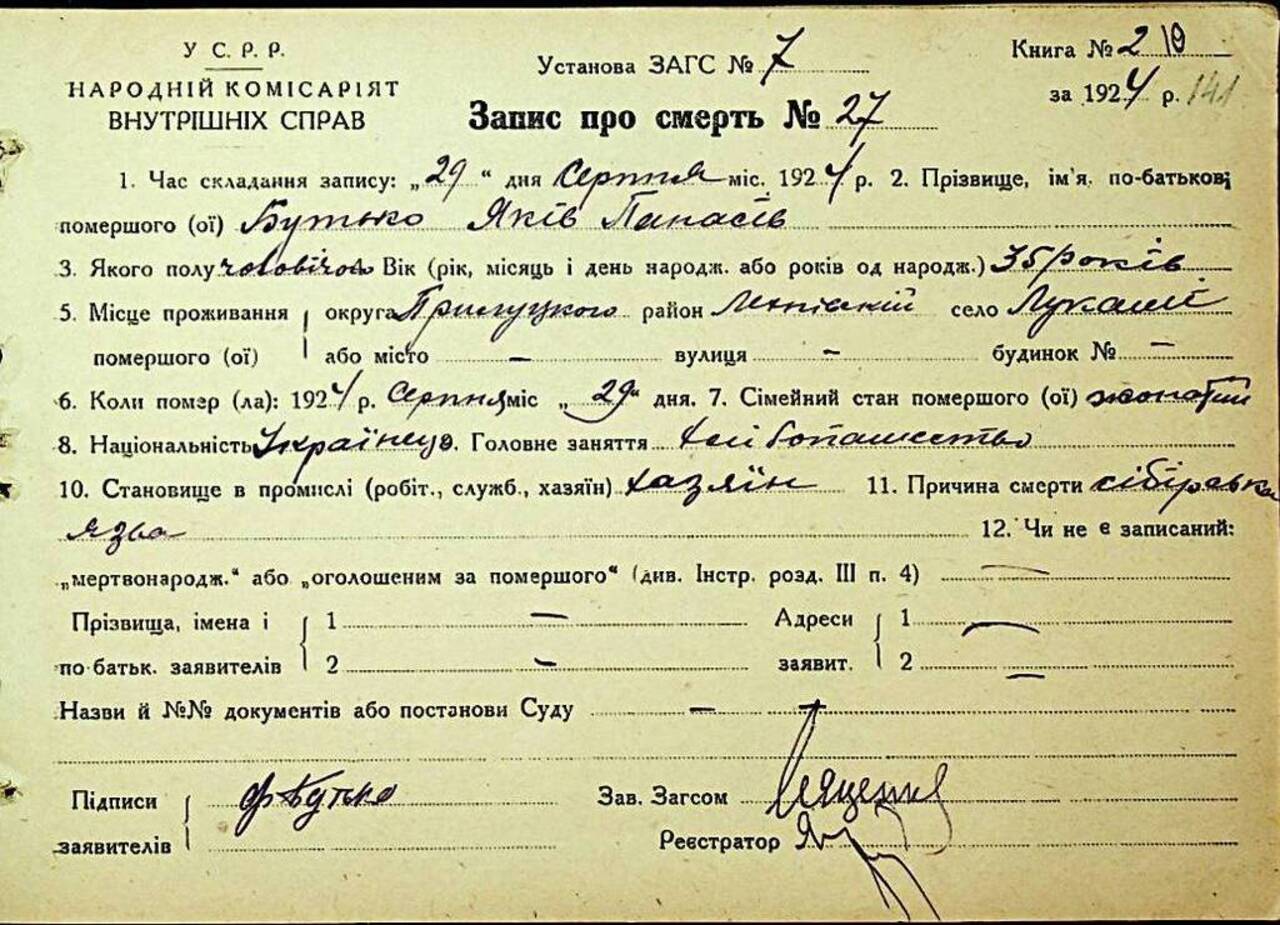 У С. Р. Р.
НАРОДНІЙ КОМІСАРІЯТ
ВНУТРІШНІХ СПРАВ
Установа ЗАГС № 7
Книга № 2
за 1924 р. 141
Запис про смерть № 27
1. Час складання запису: „29“ дня Серпня міс. 1924 р. 2. Прізвище, ім'я, по-батькові
помершого (ої) Бутько Яків Панасів
3. Якого полу чоловічого Вік (рік, місяць і день народж. або років од народж.) 35 років
5. Місце проживання округа Прилуцкого район село Лукаші
помершого (ої) або місто – вулиця – будинок № –
6. Коли помер (ла): 1924 р. Серпня міс „29“ дня. 7. Сімейний стан помершого (ої) жонатий
8. Національність Українець 9. Головне заняття
10. Становище в промислі (робіт., служб., хазяїн) хазяїн 11. Причина смерти сібірська
язва 12. Чи не є записаний:
„мертвонародж.“ або „оголошеним за помершого“ (див. Інстр. розд. III п. 4) —
Прізвища, імена і 1 — Адреси 1 —
по батьк. заявителів 2 – заявит. 2 —
Назви й №№ документів або постанови Суду – –
Підписи Бутько Зав. Загсом
заявителів Реєстратор